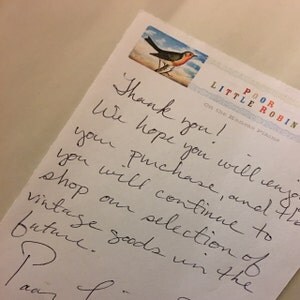 POOR
LITTLE ROBIN
Thank you!
We hope you will enjoy
your purchase, and th
you will continue to
shop our selection of
vintage goods in the
future.